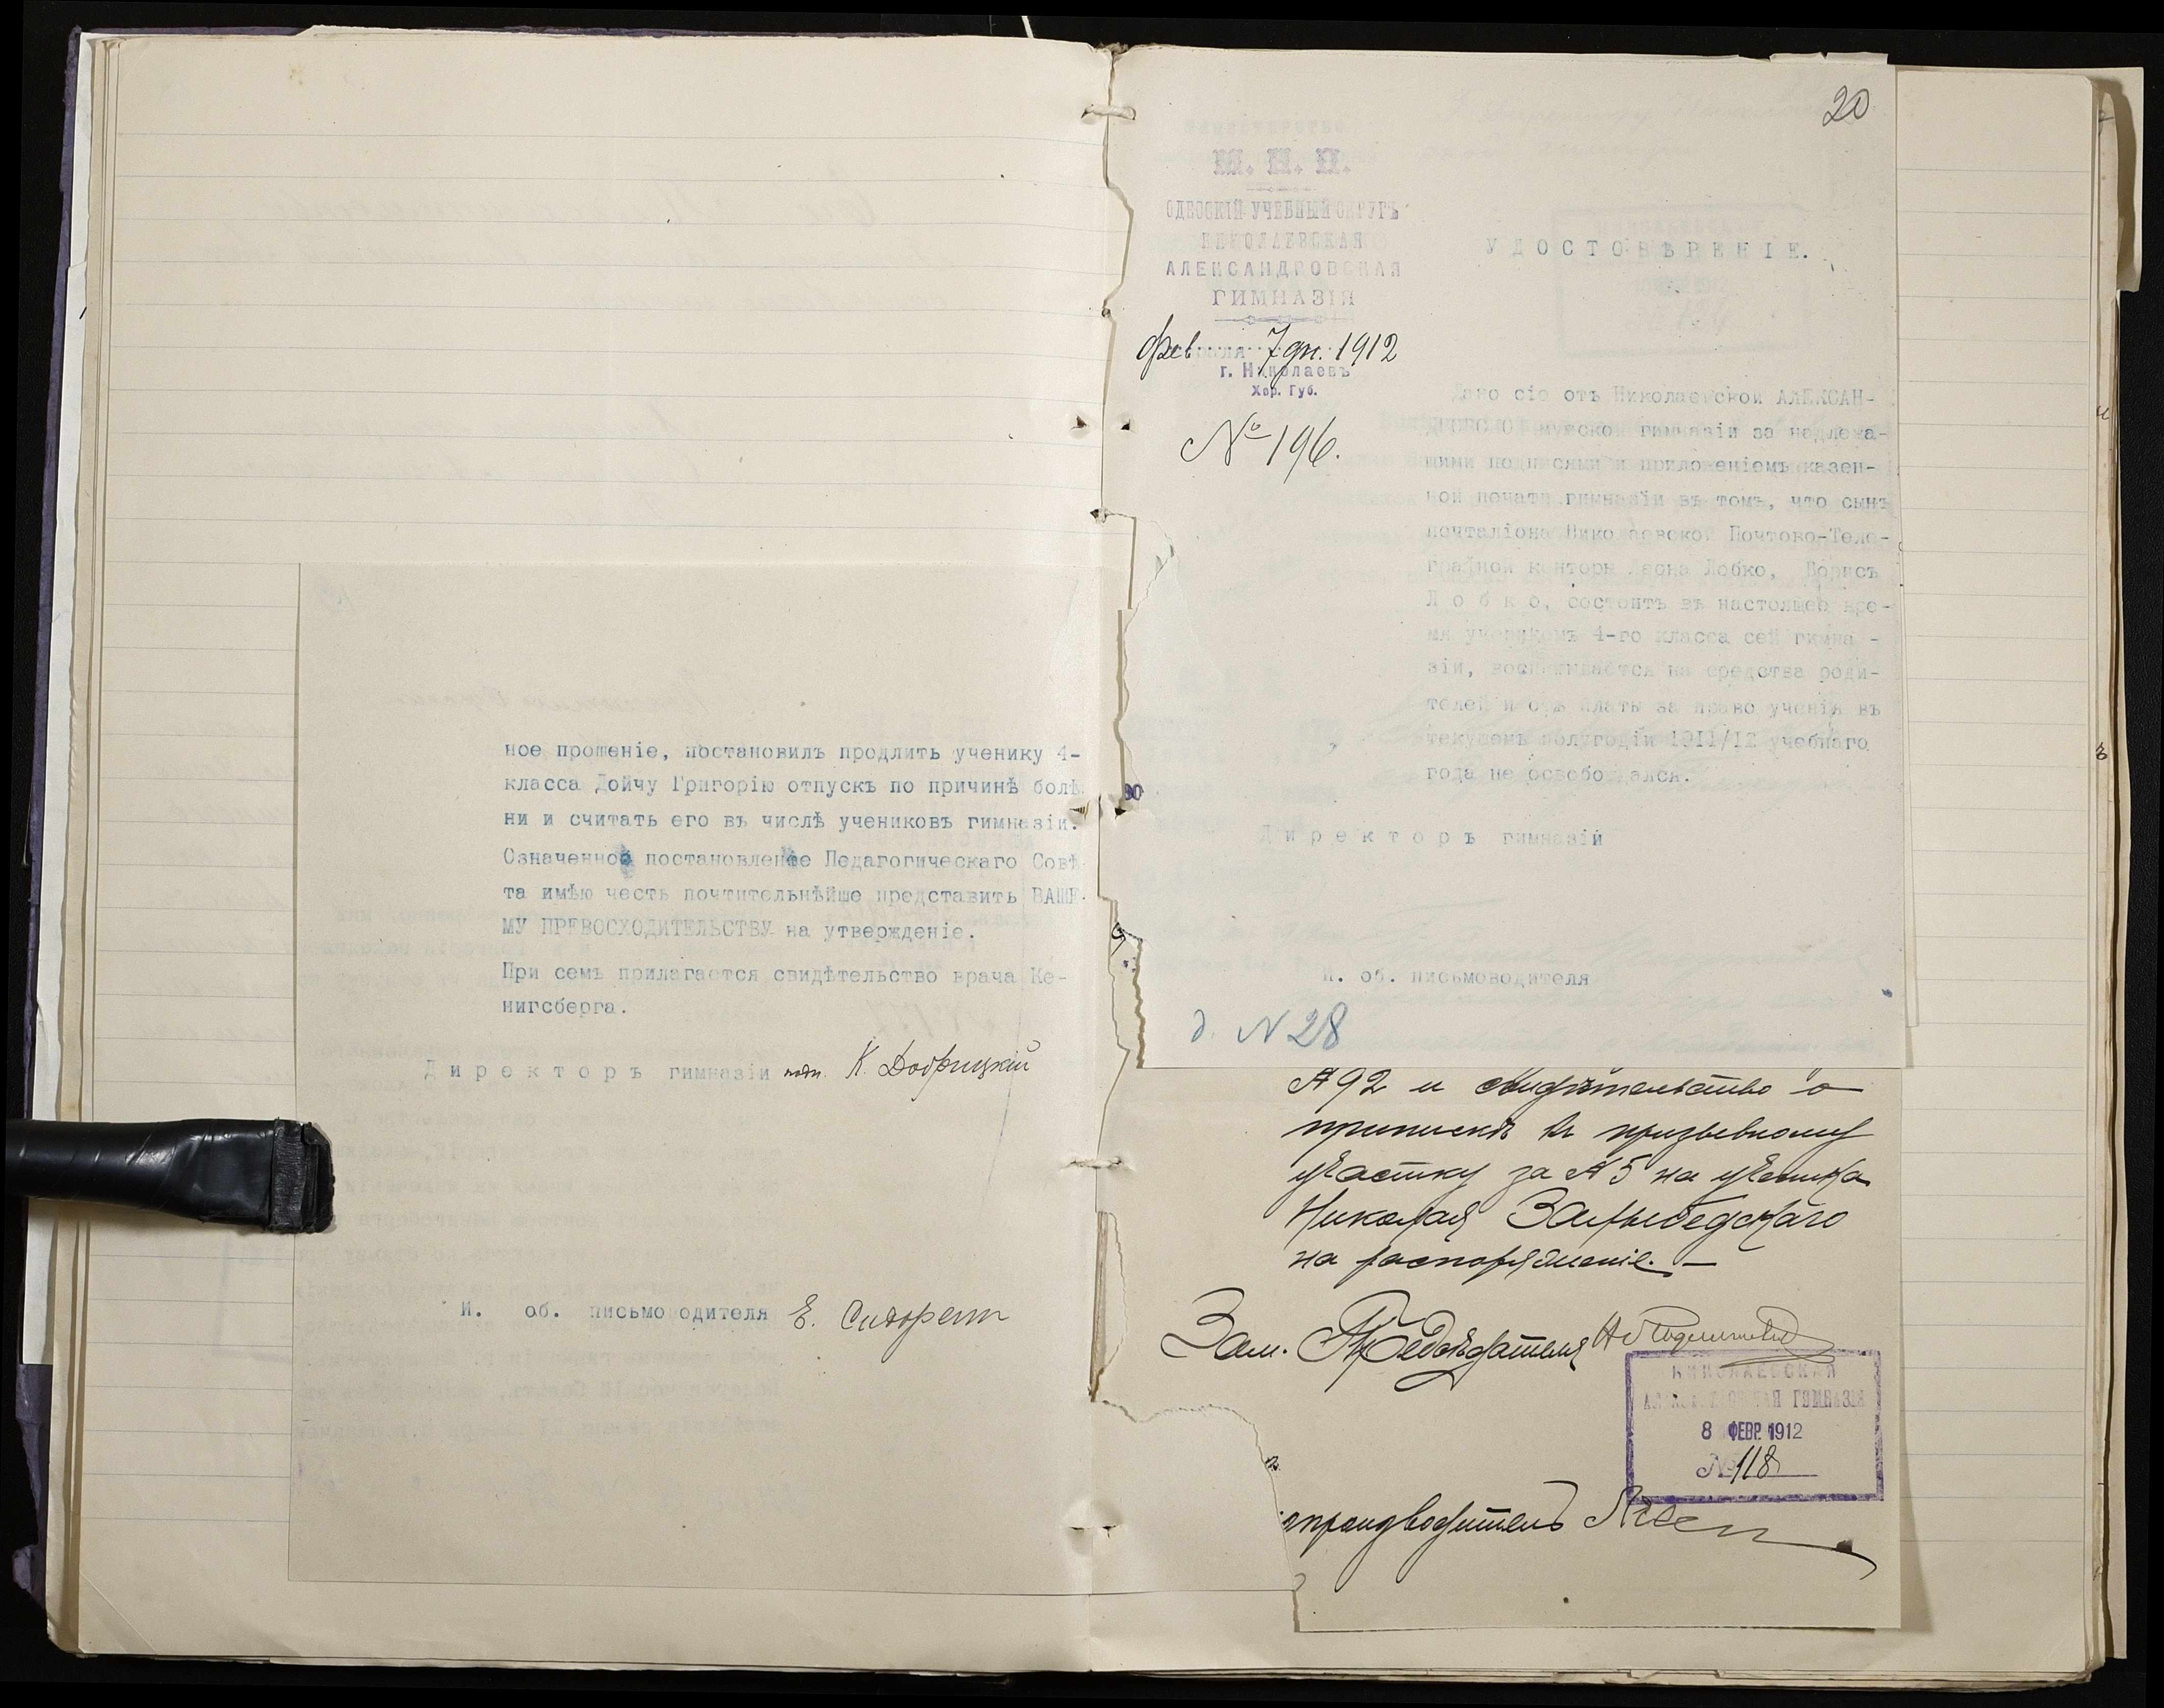 ное прошеніе, постановилъ продлить ученику 4-
класса Дойчу Григорію отпускъ по причинѣ болѣ
ни и считать его въ числѣ учениковъ гимназіи.
Означенное постановленіе Педагогическаго Совѣ-
та имѣю честь почтительнѣйше представить ВАШЕ-
МУ ПРЕВОСХОДИТЕЛЬСТВУ на утвержденіе.
При семъ прилагается свидѣтельство врача Ке-
нигсберга.
Директоръ гимназіи подп. К. Добрицкій
И. об. письмоводителя Е.
20
М. Н. П.
ОДЕССКІЙ УЧЕБНЫЙ ОКРУГЪ
НИКОЛАЕВСКАЯ
АЛЕКСАНДРОВСКАЯ
ГИМНАЗІЯ
Февраля 7 дн. 1912
г. Николаевъ
Хер. Губ.
№ 196.
УДОСТОВѢРЕНІЕ.
Дано сіе отъ Николаевской АЛЕКСАН-
ДРОВСКОЙ мужской гимназіи за надлежа-
щими подписями и приложеніемъ казен-
ной печати гимназіи въ томъ, что сынъ
почталіона Николаевской Почтово-Теле-
графной конторы Леона Лобко, Борисъ
Лобко, состоитъ въ настоящее вре-
мя ученикомъ 4-го класса сей гимна -
зіи, воспитывается на средства роди-
телей и отъ платы за право ученія въ
текущемъ полугодіи 1911/12 учебнаго
года не освобождался.
Директоръ гимназій
И. об. письмоводителя
д. N 28
№ 92 и свидѣтельство о
припискѣ къ призывному
участку за № 5 на ученика
Николая
на распоряженіе. —
Зам. Предсѣдателя
НИКОЛАЕВСКАЯ
АЛЕКСАНДРОВСКАЯ ГИМНАЗІЯ
8 ФЕВР. 1912
№ 118
опроизводитель